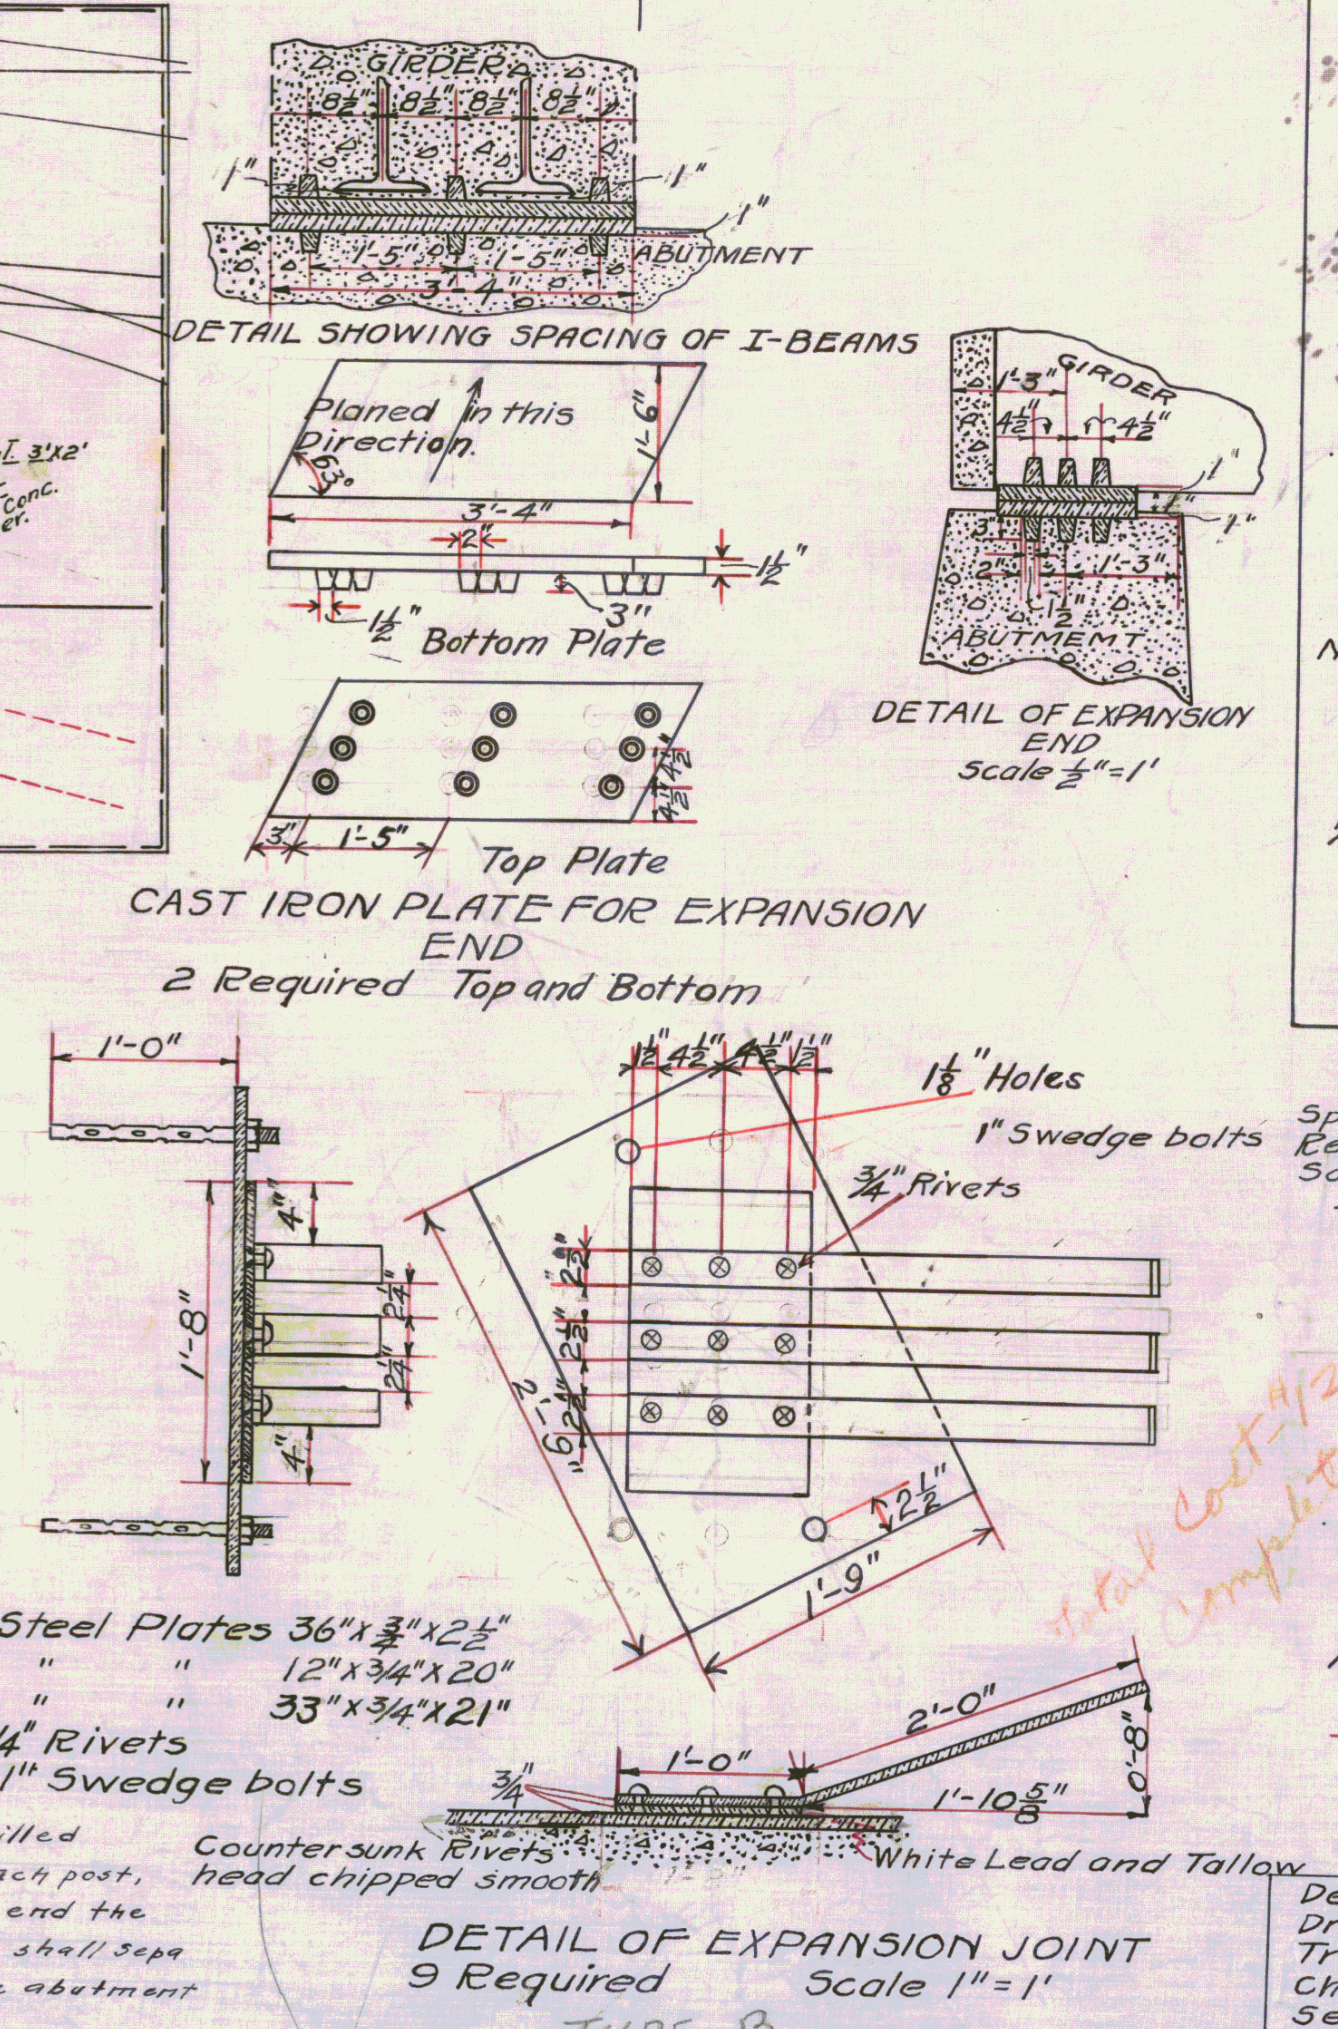 GIRDER
8½" 8½" 8½" 8½"
1" 1"
1"
1'-5" 1'-5" ABUTMENT
3'-4"
DETAIL SHOWING SPACING OF I-BEAMS
Planed in this
Direction.
63°
1'-6"
3'-4"
2"
1½"
1½" 3"
Bottom Plate
4½" 4½"
3" 1'-5"
Top Plate
CAST IRON PLATE FOR EXPANSION
END
2 Required Top and Bottom
GIRDER
1'-3"
4½" 4½"
1"
1"
1"
3"
2" 1'-3"
1½"
ABUTMEMT
DETAIL OF EXPANSION
END
Scale ½"=1'
I 3'x2'
Conc.
er.
1'-0"
4"
1'-8"
2¼"
2¼"
4"
1½" 4½" 4½" 1½"
1⅛" Holes
1" Swedge bolts
¾" Rivets
2½"
2½"
2½"
2'-9"
2½"
1'-9"
Total Cost
Complet
Steel Plates 36"x¾"x2½"
" " 12"x3/4"x20"
" " 33"x3/4"x21"
/4" Rivets
1" Swedge bolts
illed
ach post,
end the
shall sepa
abutment
2'-0"
1'-0"
0'-8"
3/4"
1'-10⅝"
Countersunk Rivets
head chipped smooth
White Lead and Tallow
DETAIL OF EXPANSION JOINT
9 Required Scale 1"=1'
TYPE B
Sp
Re
Sc
De
Dr
Tr
Ch
Se